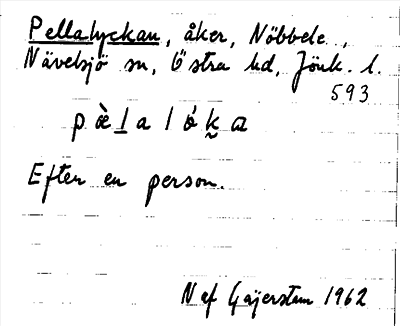 Pellalyckan, åker, Nöbbele,
Nävelsjö sn, Östra hd, Jönk. l.
593
p æ̀ l̲ a l ó̵ k̰ a
Efter en person.
N af Geijerstam 1962